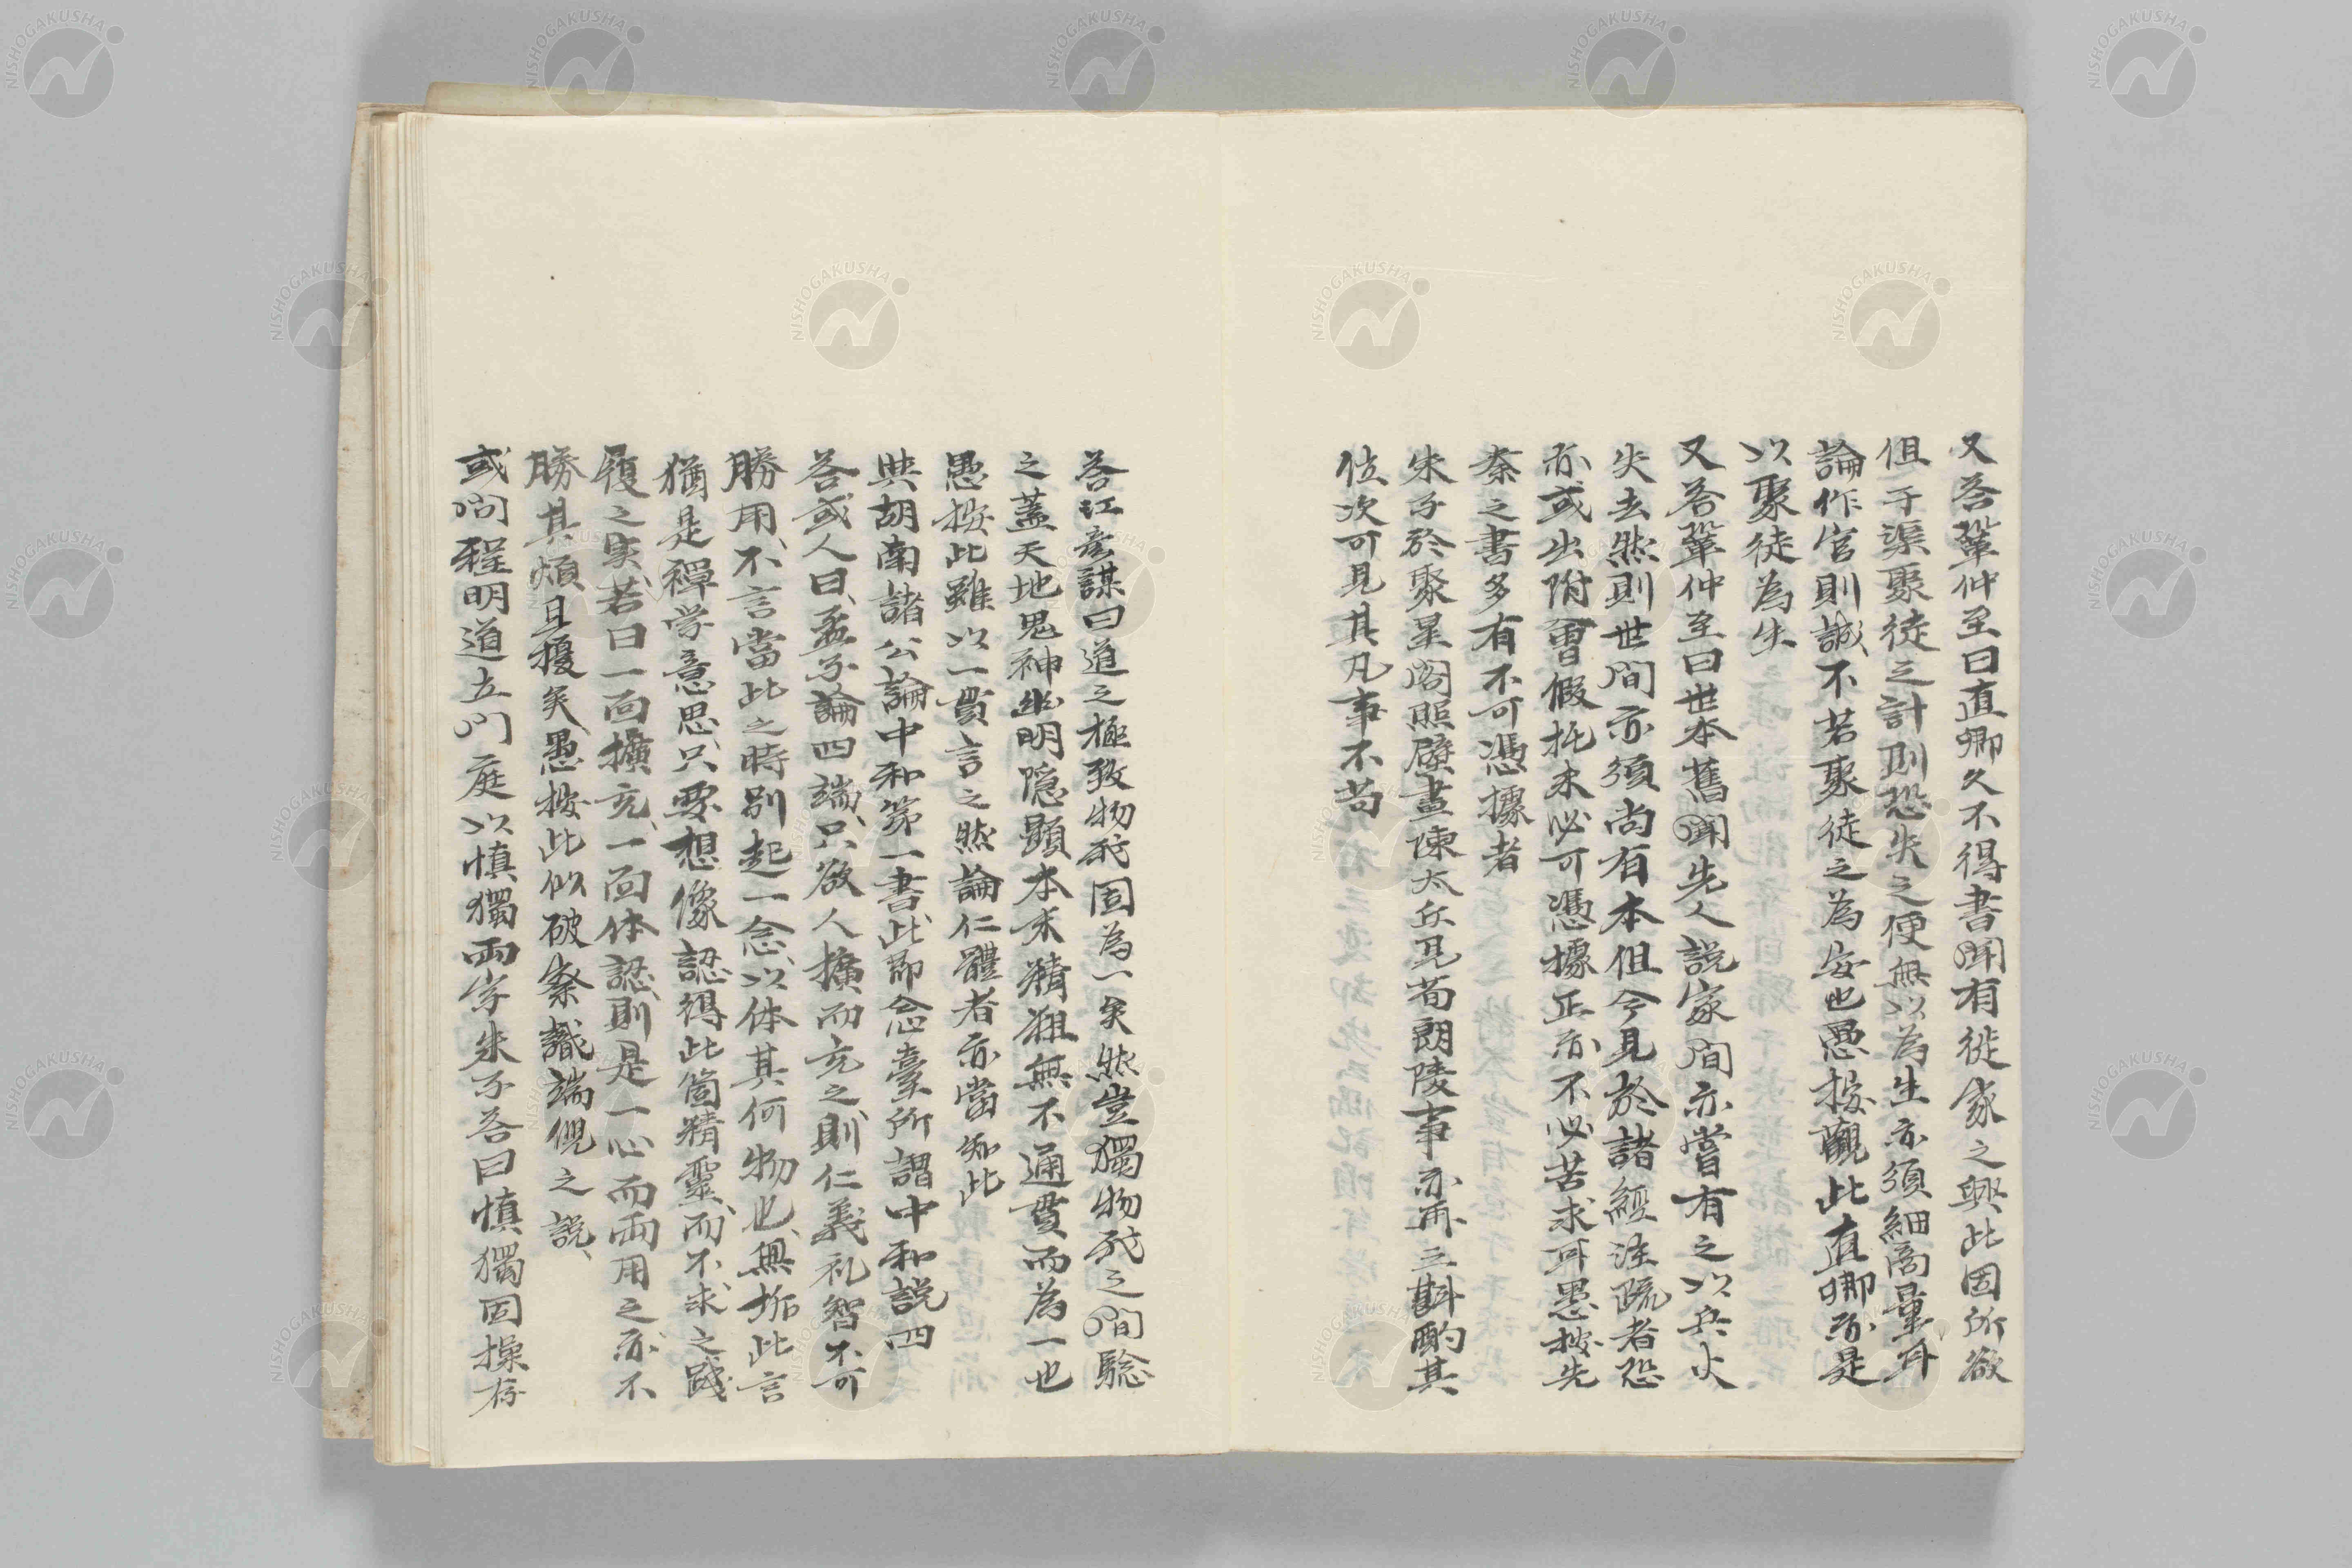 又答鞏仲至曰直卿久不得書聞有徙家之興此固所欲
但于渠聚徒之計則恐失之便無以為生亦須細商量耳
論作官則誠不若聚徒之為安也愚按觀此直卿亦是
以聚徒為生
又答鞏仲至曰世本舊聞先人説家間亦嘗有之以兵火
失去然則世間亦須尚有本但今見於諸經注疏者恐
亦或出附會假托未必可憑據正亦不必苦求耳愚按先
秦之書多有不可憑據者
朱子於聚星閣照壁畫陳太丘見荀朗陵事亦再三斟酌其
位次可見其凡事不苟
答江彦謀曰道之極致物我固為一矣然豈獨物我之間驗
之蓋天地鬼神幽明隠顕本末精粗無不通貫而為一也
愚按此雖以一貫言之然論仁體者亦當知此
與胡南諸公論中和第一書此即念臺所謂中和説四
答或人曰孟子論四端只欲人擴而充之則仁義礼智不可
勝用、不言當此之時別起一念、以体其何物也、無拆此言
猶是禪学意思、只要想像認得此箇精靈、而不求之踐
履之実、若曰一面擴充、一面体認、則是一心而両用之亦不
勝其煩且擾矣、愚按此似破察識端倪之説、
或問程明道立門庭以慎獨両字朱子答曰慎獨固操存